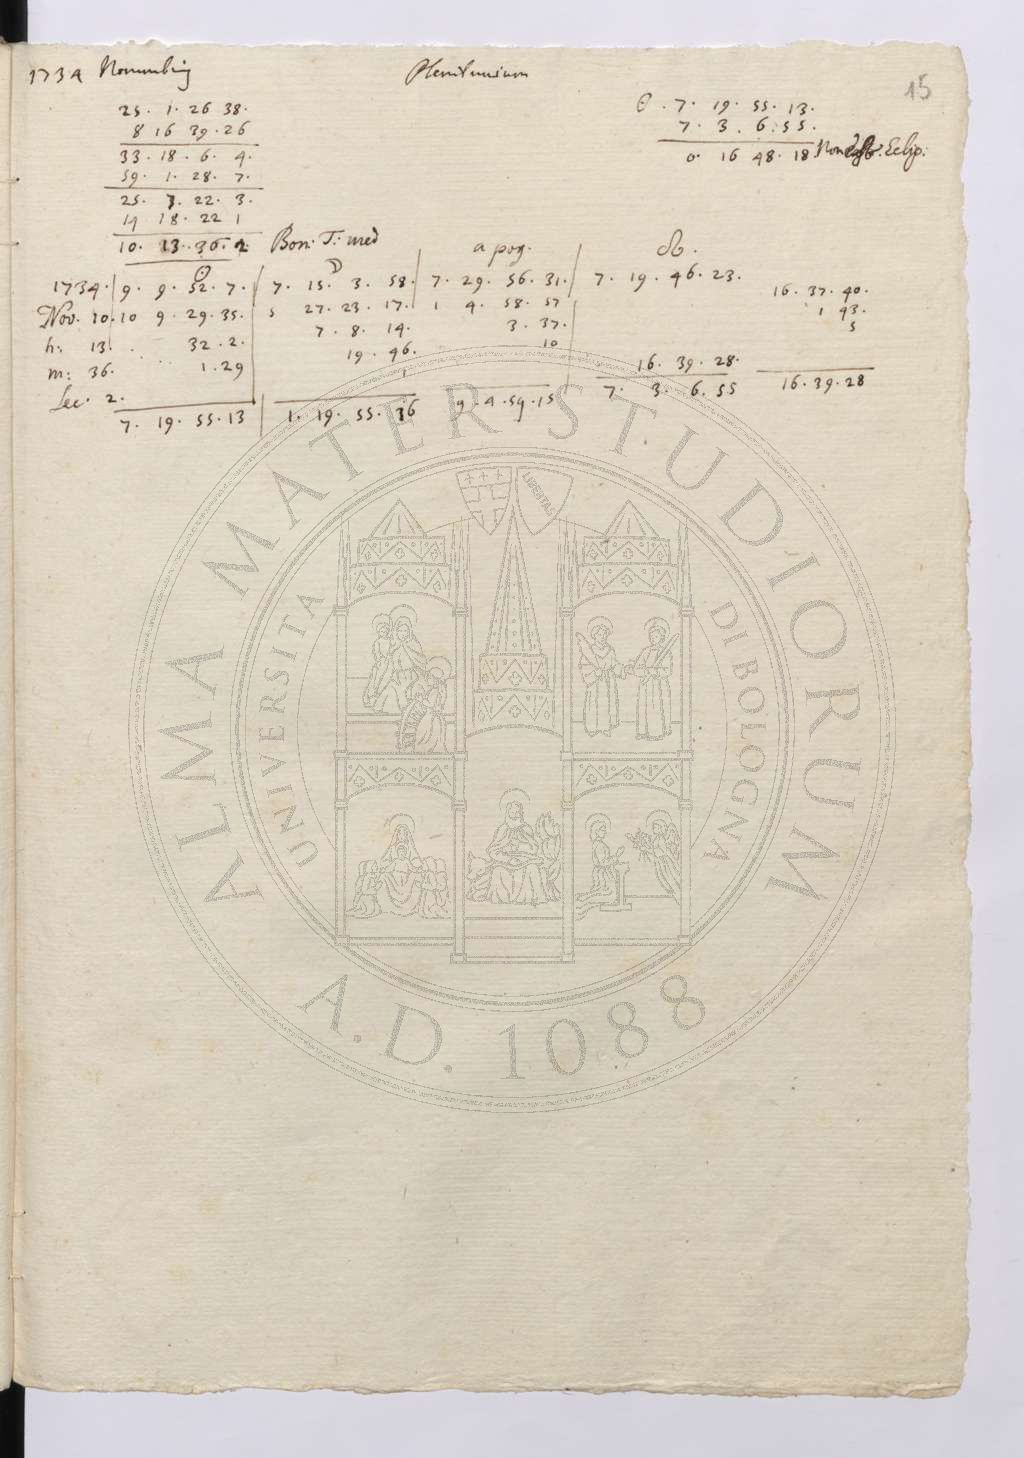 15
1734 Novembris Plenilunium
25. 1. 26 38.
8 16 39. 26
33. 18. 6. 4.
59. 1. 28. 7.
25. 7. 22. 3.
14 18. 22 1
10. 13. 36. 2 Bon. T. med
☉. 7. 19. 55. 13.
7. 3. 6. 55.
0. 16 48. 18 Non Eclip.
☉ ☽ apog. ☊.
1734. 9. 9. 52. 7. 7. 15. 3. 58. 7. 29. 56. 31. 7. 19. 46. 23.
Nov. 10. 10 9. 29. 35. 5 27. 23. 17. 1 4. 58. 57
h: 13. 32. 2. 7. 8. 14. 3. 37.
m: 36. 1. 29 19. 46. 10
Sec. 2. 1
7. 19. 55. 13 1. 19. 55. 36 9. 4. 59. 15
16. 39. 28.
7. 3. 6. 55
16. 37. 40.
1 43.
5
16. 39. 28
ALMA MATER STUDIORUM
A.D. 1088
UNIVERSITA DI BOLOGNA
LIBERTAS